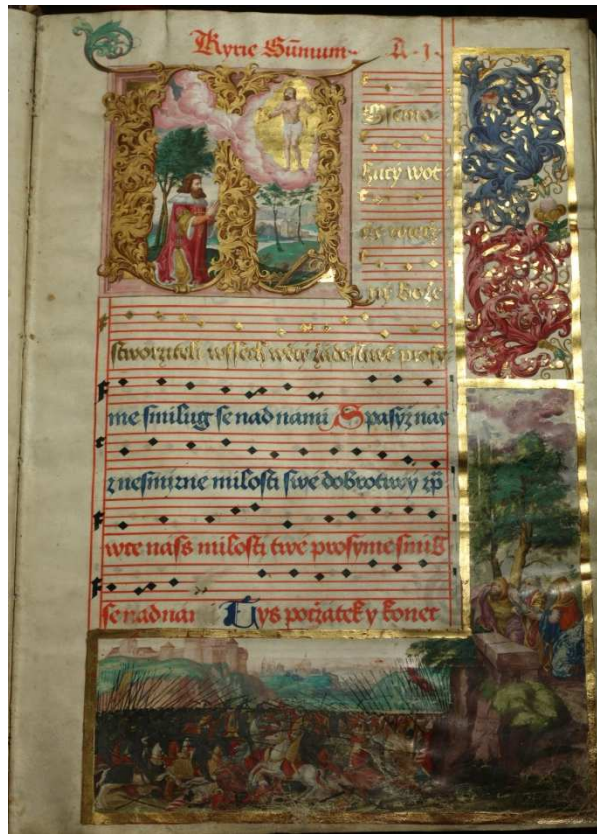 Kyrie Sum̄um A·I·
Wssemo-
hucý wot
cze wiecz
ný Boże
stworziteli wssech wěcý żádostiwě prosy
me smilug se nad nami Spasyż nás
z nesmirne milosti swé dobrotiwý zp̄
wte náss milosti twé prosyme smilg̃
se nad nai Tys poczátek y konec